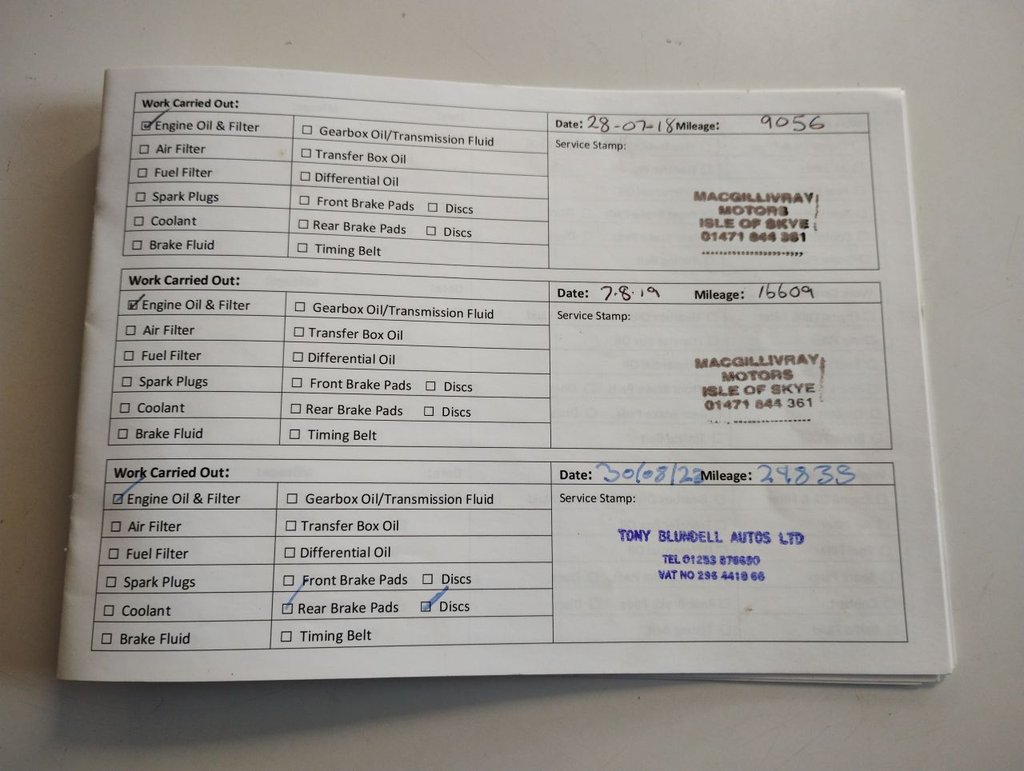 Work Carried Out:
☑ Engine Oil & Filter ☐ Gearbox Oil/Transmission Fluid
☐ Air Filter ☐ Transfer Box Oil
☐ Fuel Filter ☐ Differential Oil
☐ Spark Plugs ☐ Front Brake Pads ☐ Discs
☐ Coolant ☐ Rear Brake Pads ☐ Discs
☐ Brake Fluid ☐ Timing Belt
Date: 28-07-18 Mileage: 9056
Service Stamp:
MACGILLIVRAY
MOTORS
ISLE OF SKYE
01471 844 361
Work Carried Out:
☑ Engine Oil & Filter ☐ Gearbox Oil/Transmission Fluid
☐ Air Filter ☐ Transfer Box Oil
☐ Fuel Filter ☐ Differential Oil
☐ Spark Plugs ☐ Front Brake Pads ☐ Discs
☐ Coolant ☐ Rear Brake Pads ☐ Discs
☐ Brake Fluid ☐ Timing Belt
Date: 7.8.19 Mileage: 16609
Service Stamp:
MACGILLIVRAY
MOTORS
ISLE OF SKYE
01471 844 361
Work Carried Out:
☑ Engine Oil & Filter ☐ Gearbox Oil/Transmission Fluid
☐ Air Filter ☐ Transfer Box Oil
☐ Fuel Filter ☐ Differential Oil
☐ Spark Plugs ☐ Front Brake Pads ☐ Discs
☐ Coolant ☑ Rear Brake Pads ☑ Discs
☐ Brake Fluid ☐ Timing Belt
Date: Mileage:
Service Stamp:
TONY BLUNDELL AUTOS LTD
TEL 01253
VAT NO 295 4419 66